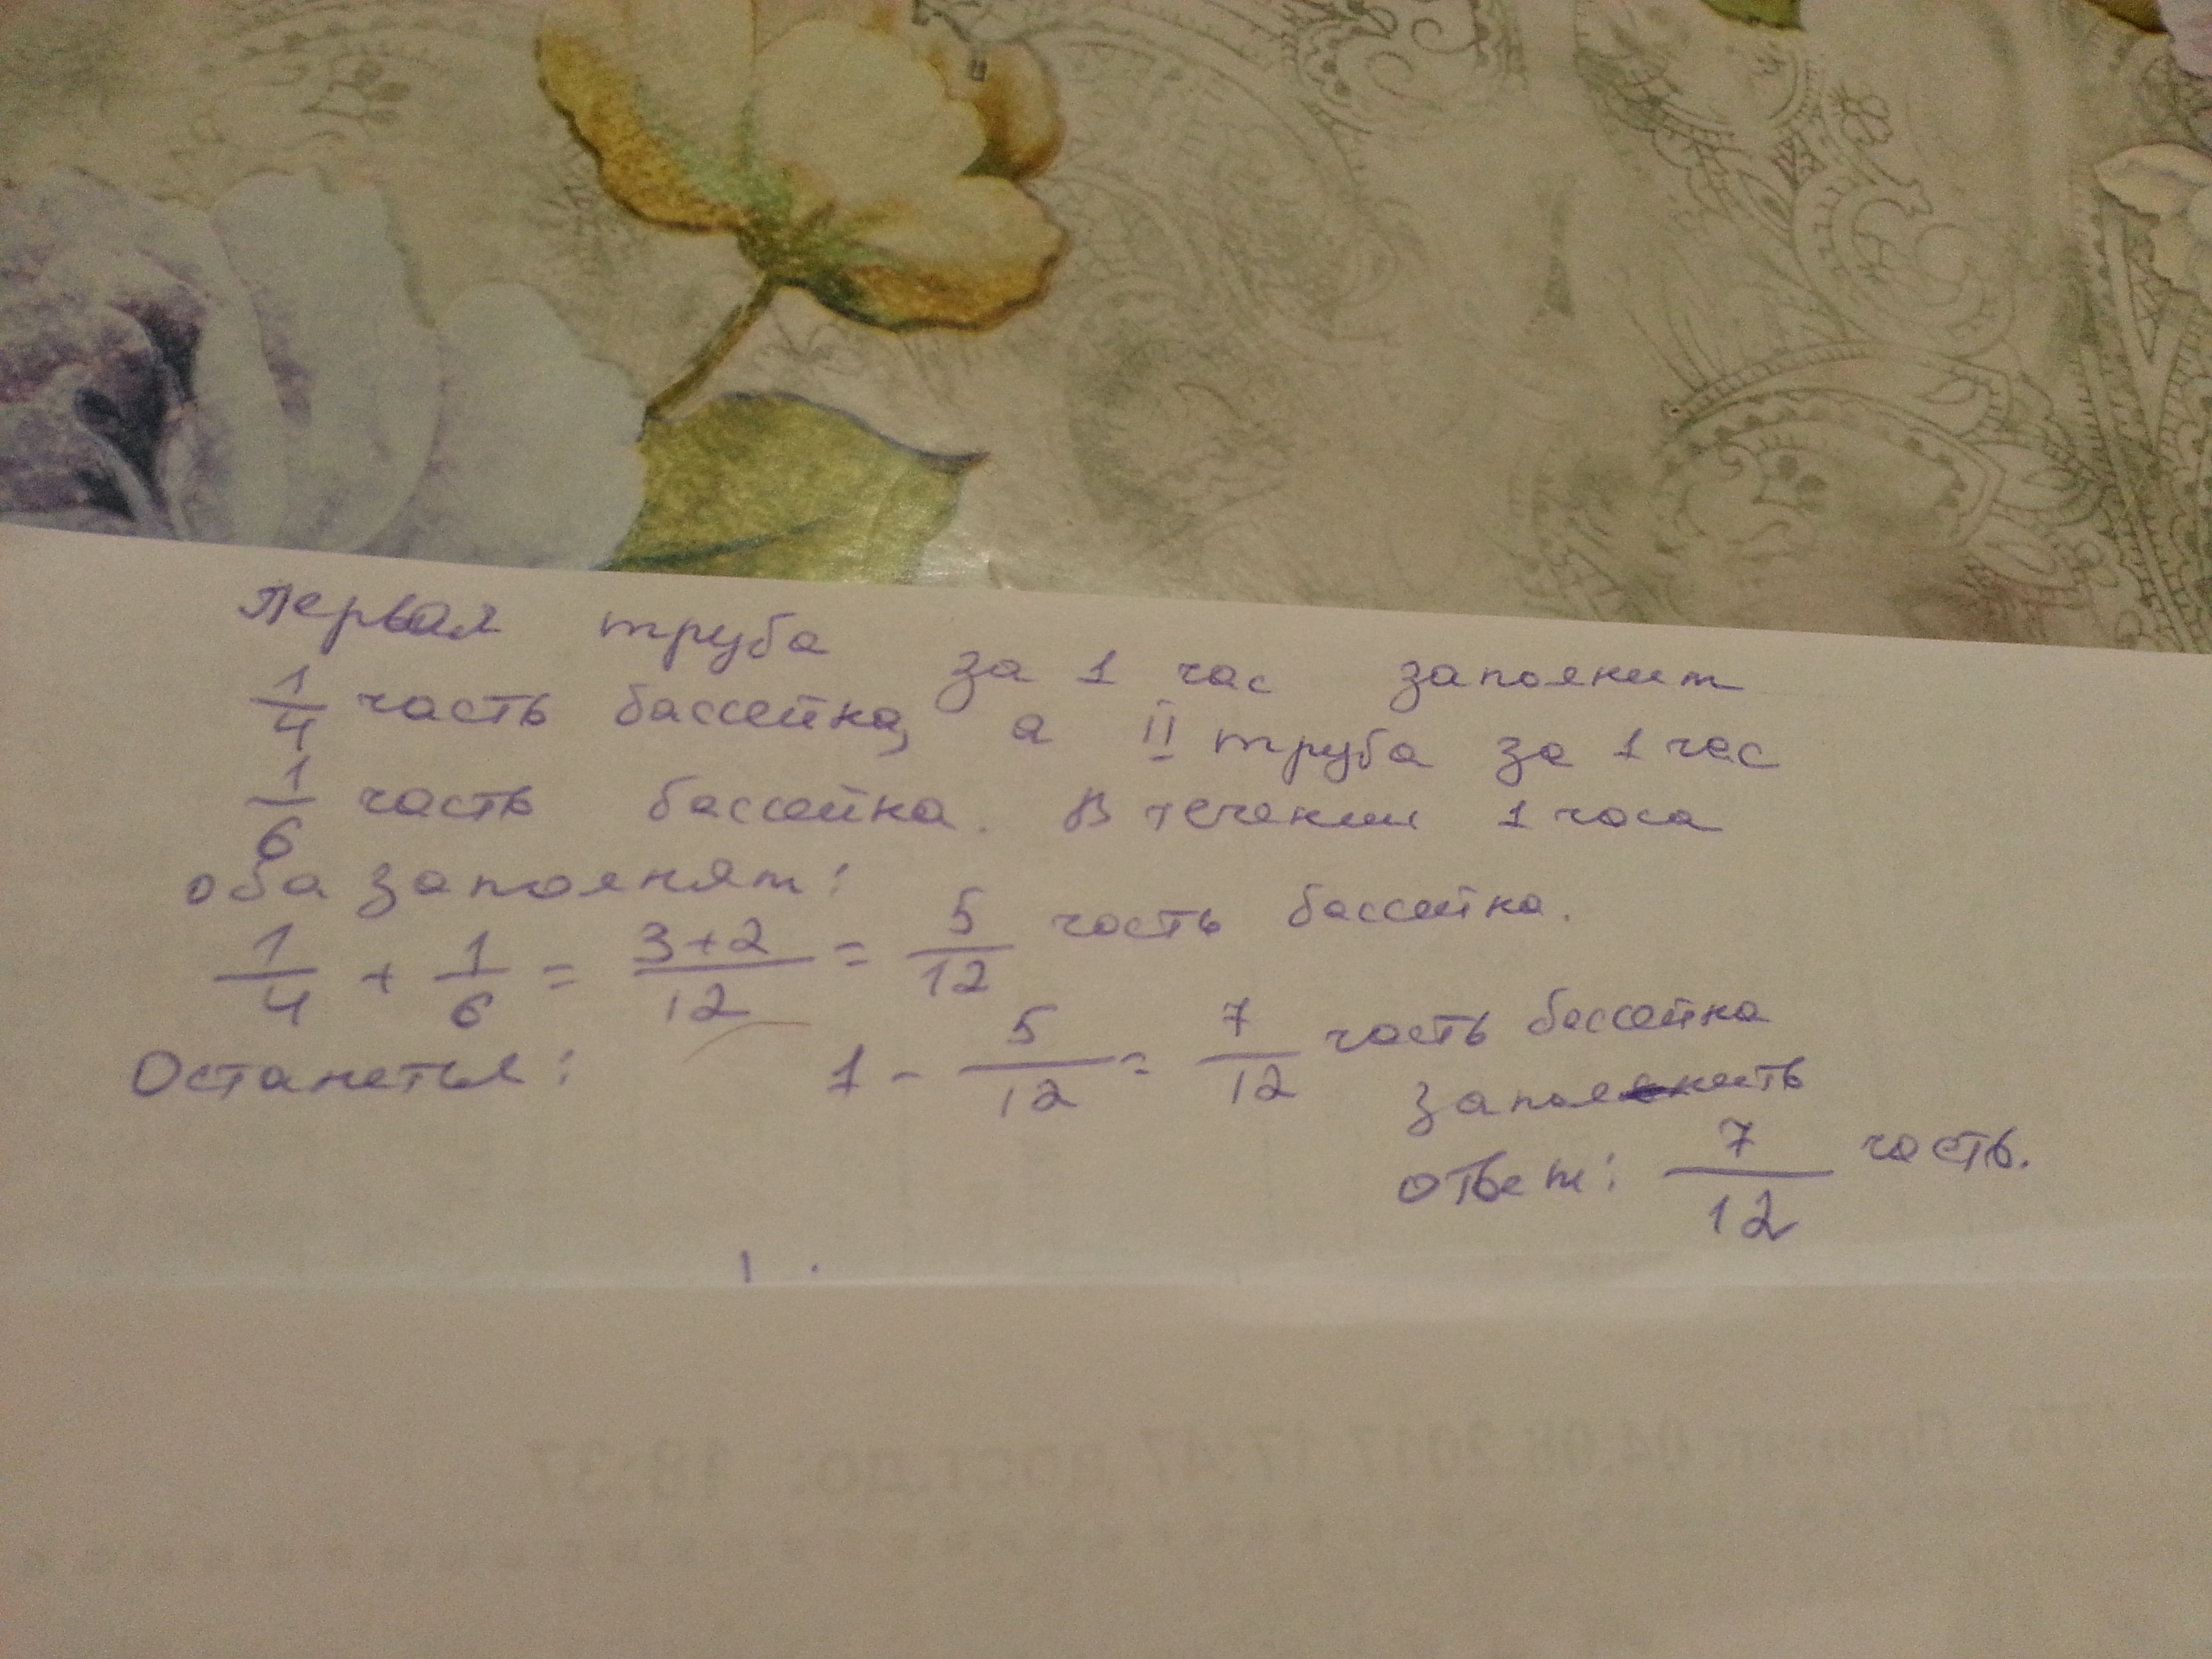 Первая труба за 1 час заполнит
1/4 часть бассейна, а II труба за 1 час
1/6 часть бассейна. В течении 1 часа
оба заполнят:
1/4 + 1/6 = 3+2/12 = 5/12 часть бассейна.
Останеться: 1 - 5/12 = 7/12 часть бассейна
заполнить
ответ: 7/12 часть.
04.08.2017 17:47 дост.до: 18:37